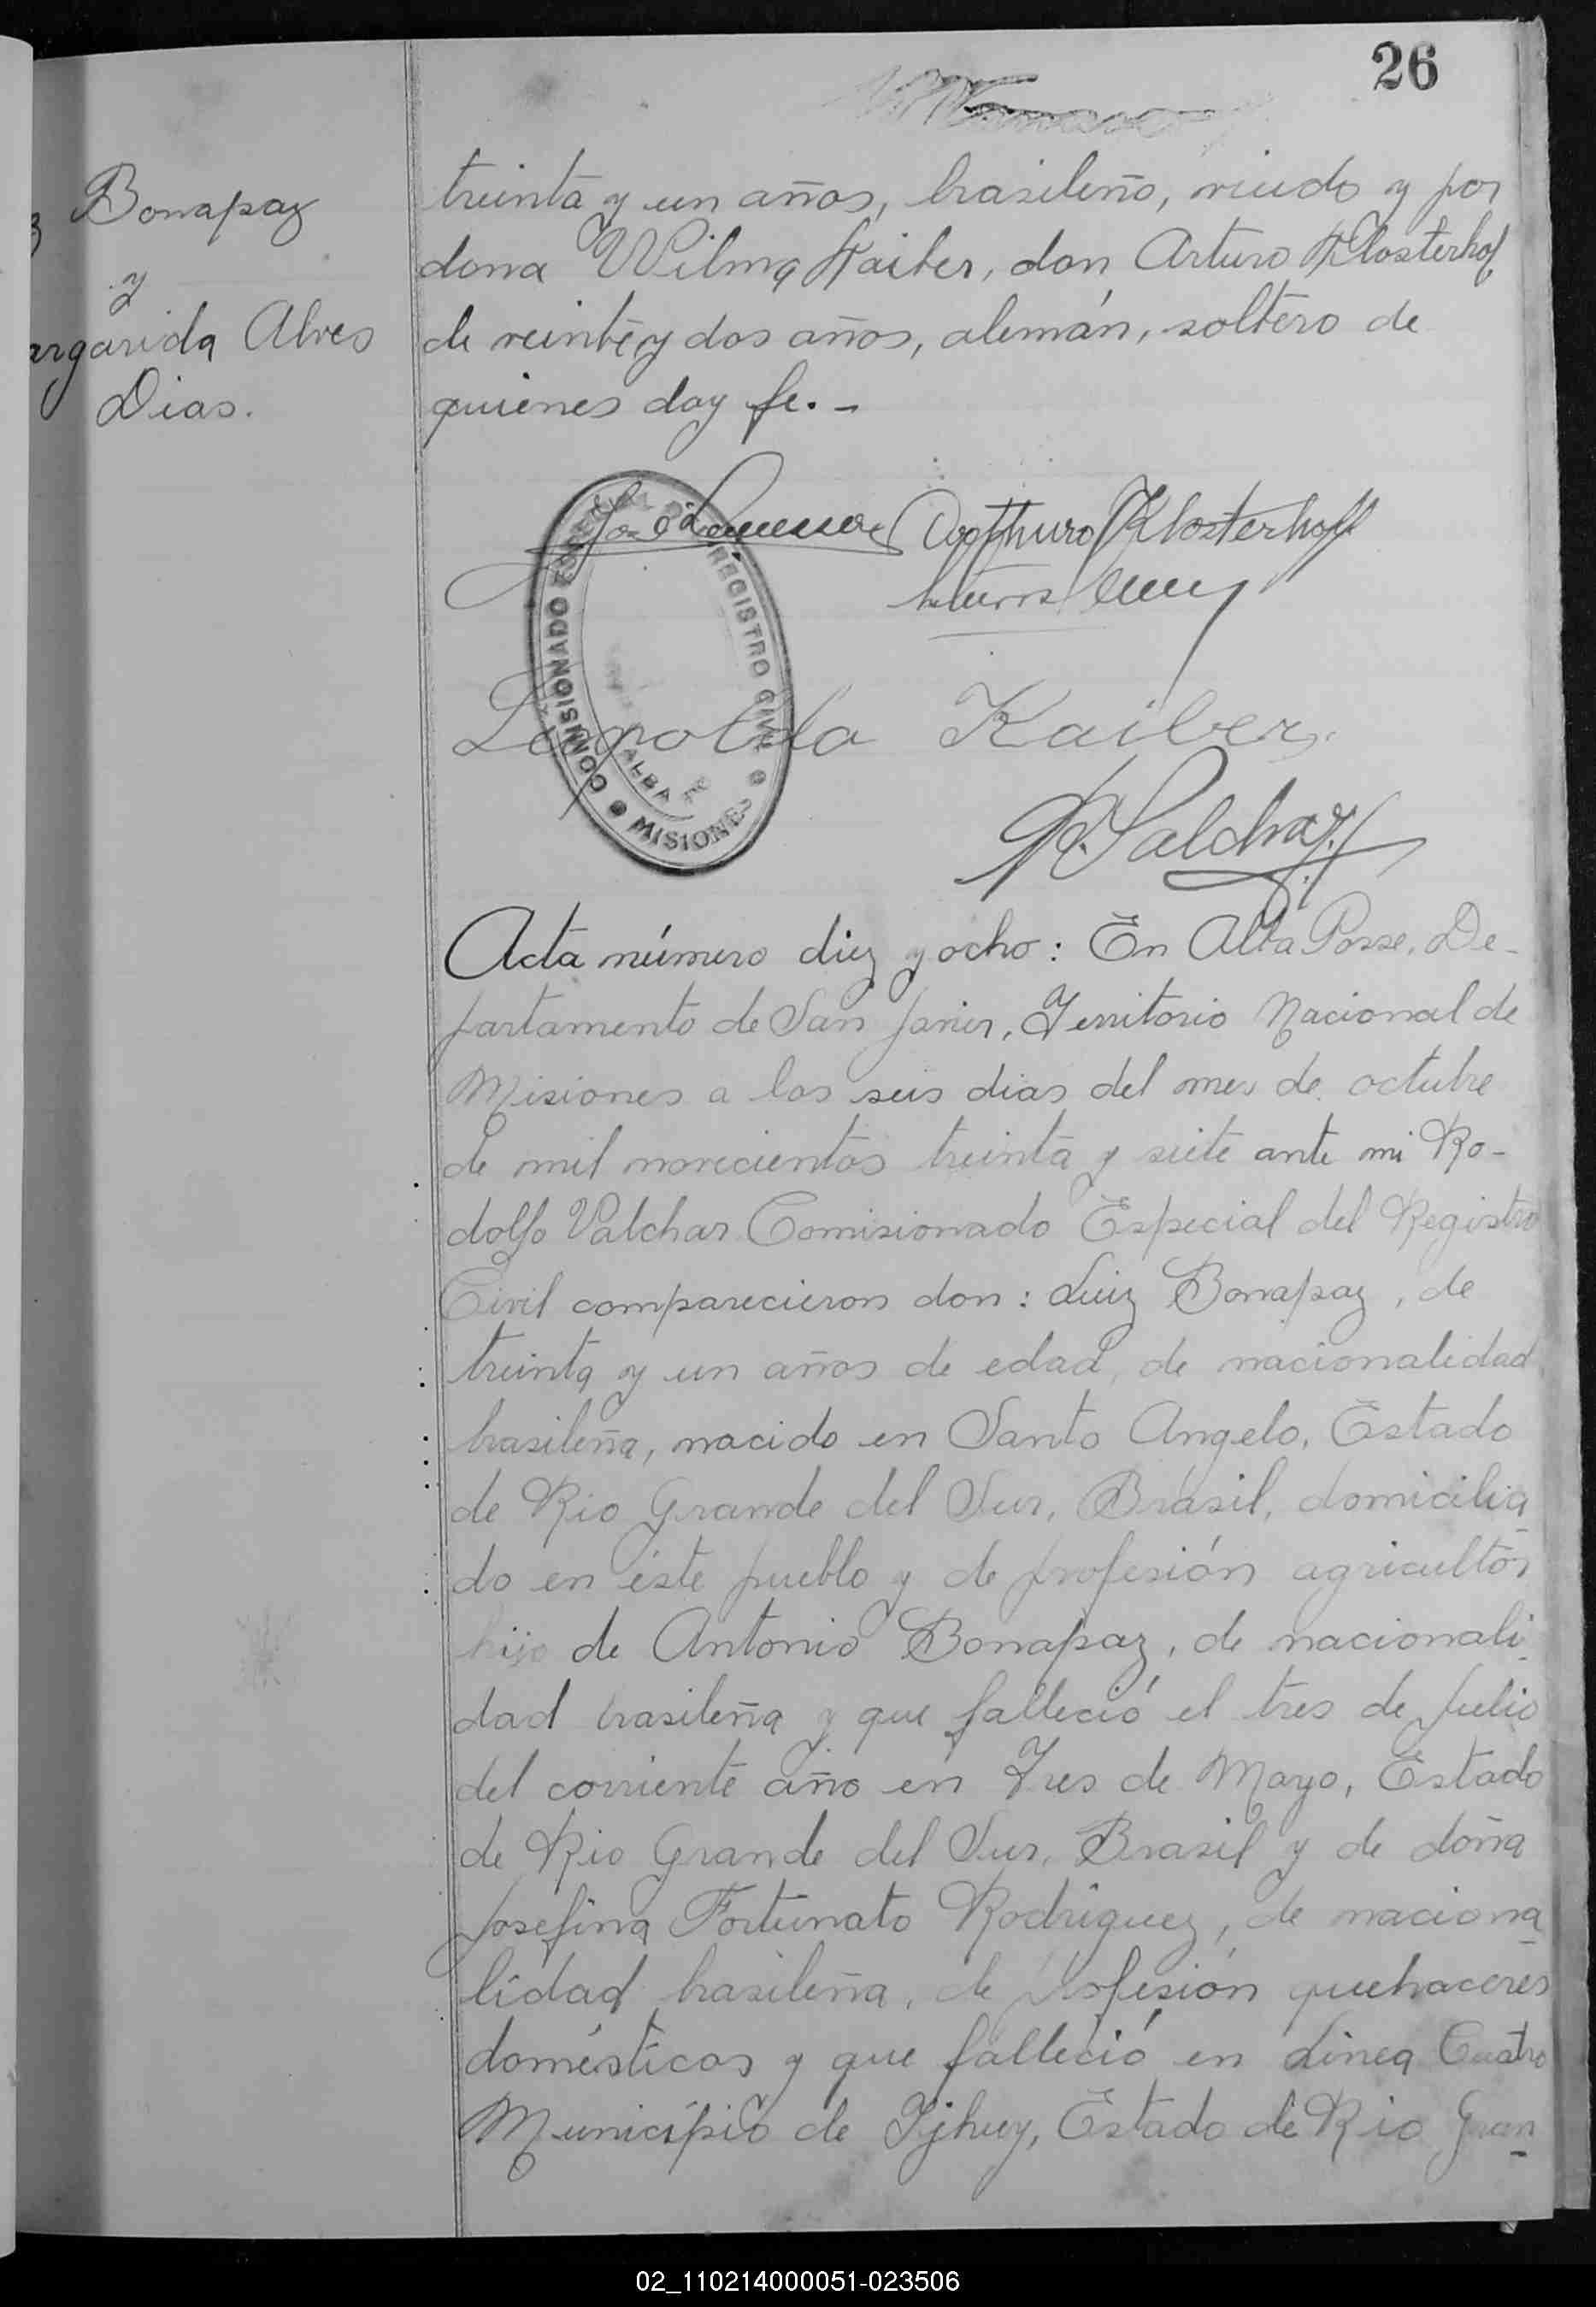 26
Bonapaz
y
argarida Alves
Dias.
treinta y un años, brasileño, viudo y por
dona Wilma Kaiber, don Arturo Klosterhof
de veinte y dos años, alemán, soltero de
quienes doy fe. -
Klosterhoff
COMISIONADO ESPECIAL DEL REGISTRO CIVIL
ALBA
MISIONES
Leopoldo Kaiber
Acta número diez y ocho: En Alba Posse, De-
partamento de San Javier, Territorio Nacional de
Misiones a los seis dias del mes de octubre
de mil novecientos treinta y siete ante mi Ro-
dolfo Valchar Comisionado Especial del Registro
Civil comparecieron don: Luiz Bonapaz, de
treinta y un años de edad, de nacionalidad
brasileña, nacido en Santo Angelo, Estado
de Rio Grande del Sur, Brasil, domicilia
do en éste pueblo y de profesión agricultor
hijo de Antonio Bonapaz, de nacionali-
dad brasileña y que falleció el tres de Julio
del corriente año en Tres de Mayo, Estado
de Rio Grande del Sur, Brasil y de doña
Josefina Fortunato Rodriguez, de naciona
lidad brasileña, de profesión quehaceres
domésticos y que falleció en Linea Cuatro
Municipio de Ijhuy, Estado de Rio Gran-
02_110214000051-023506